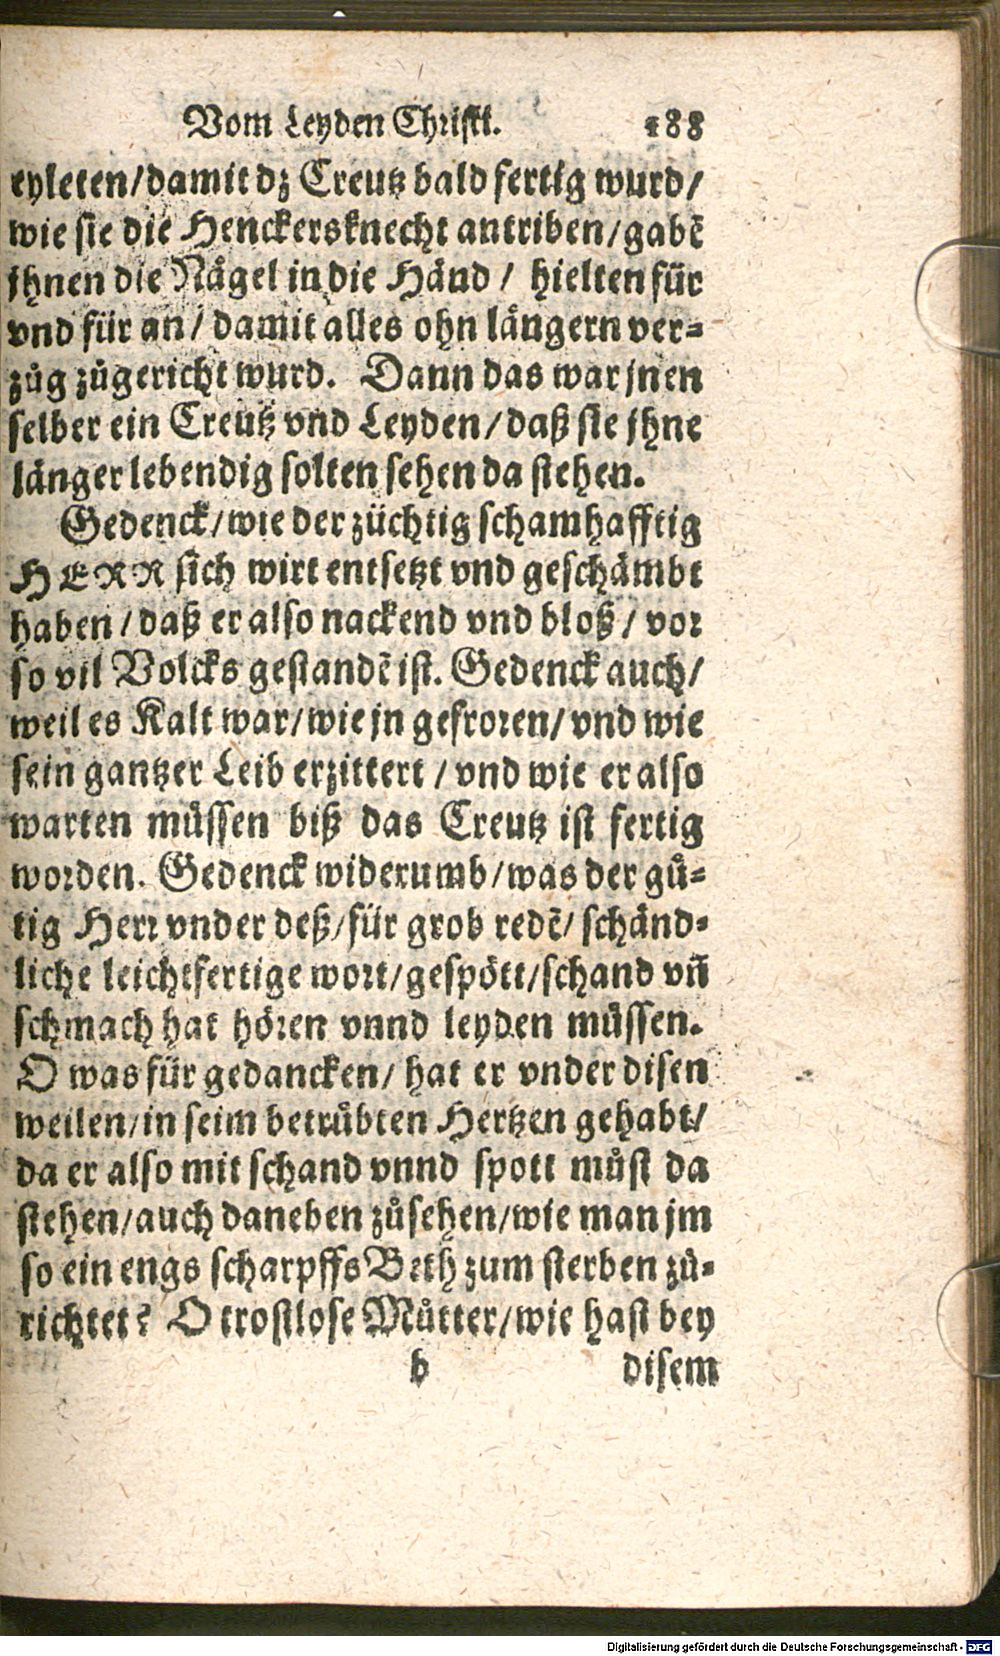 Vom Leyden Christi. 188
eyleten/damit dz Creutz bald fertig wurd/
wie sie die Henckersknecht antriben/gabẽ
jhnen die Nägel in die Händ/ hielten für
vnd für an/ damit alles ohn längern ver-
zůg zůgericht wurd. Dann das war jnen
selber ein Creutz vnd Leyden/daß sie jhne
länger lebendig solten sehen da stehen.
Gedenck/wie der züchtig schamhafftig
HERR sich wirt entsetzt vnd geschämbt
haben/daß er also nackend vnd bloß/ vor
so vil Volcks gestandẽ ist. Gedenck auch/
weil es Kalt war/wie jn gefroren/vnd wie
sein gantzer Leib erzittert/vnd wie er also
warten müssen biß das Creutz ist fertig
worden. Gedenck widerumb/was der gü-
tig Herr vnder deß/für grob redẽ/schänd-
liche leichtfertige wort/gespött/schand vñ
schmach hat hören vnnd leyden müssen.
O was für gedancken/ hat er vnder disen
weilen/in seim betrübten Hertzen gehabt/
da er also mit schand vnnd spott můst da
stehen/auch daneben zůsehen/wie man jm
so ein engs scharpffs Beth zum sterben zů-
richtet? O trostlose Můtter/wie hast bey
b disem
Digitalisierung gefördert durch die Deutsche Forschungsgemeinschaft - DFG